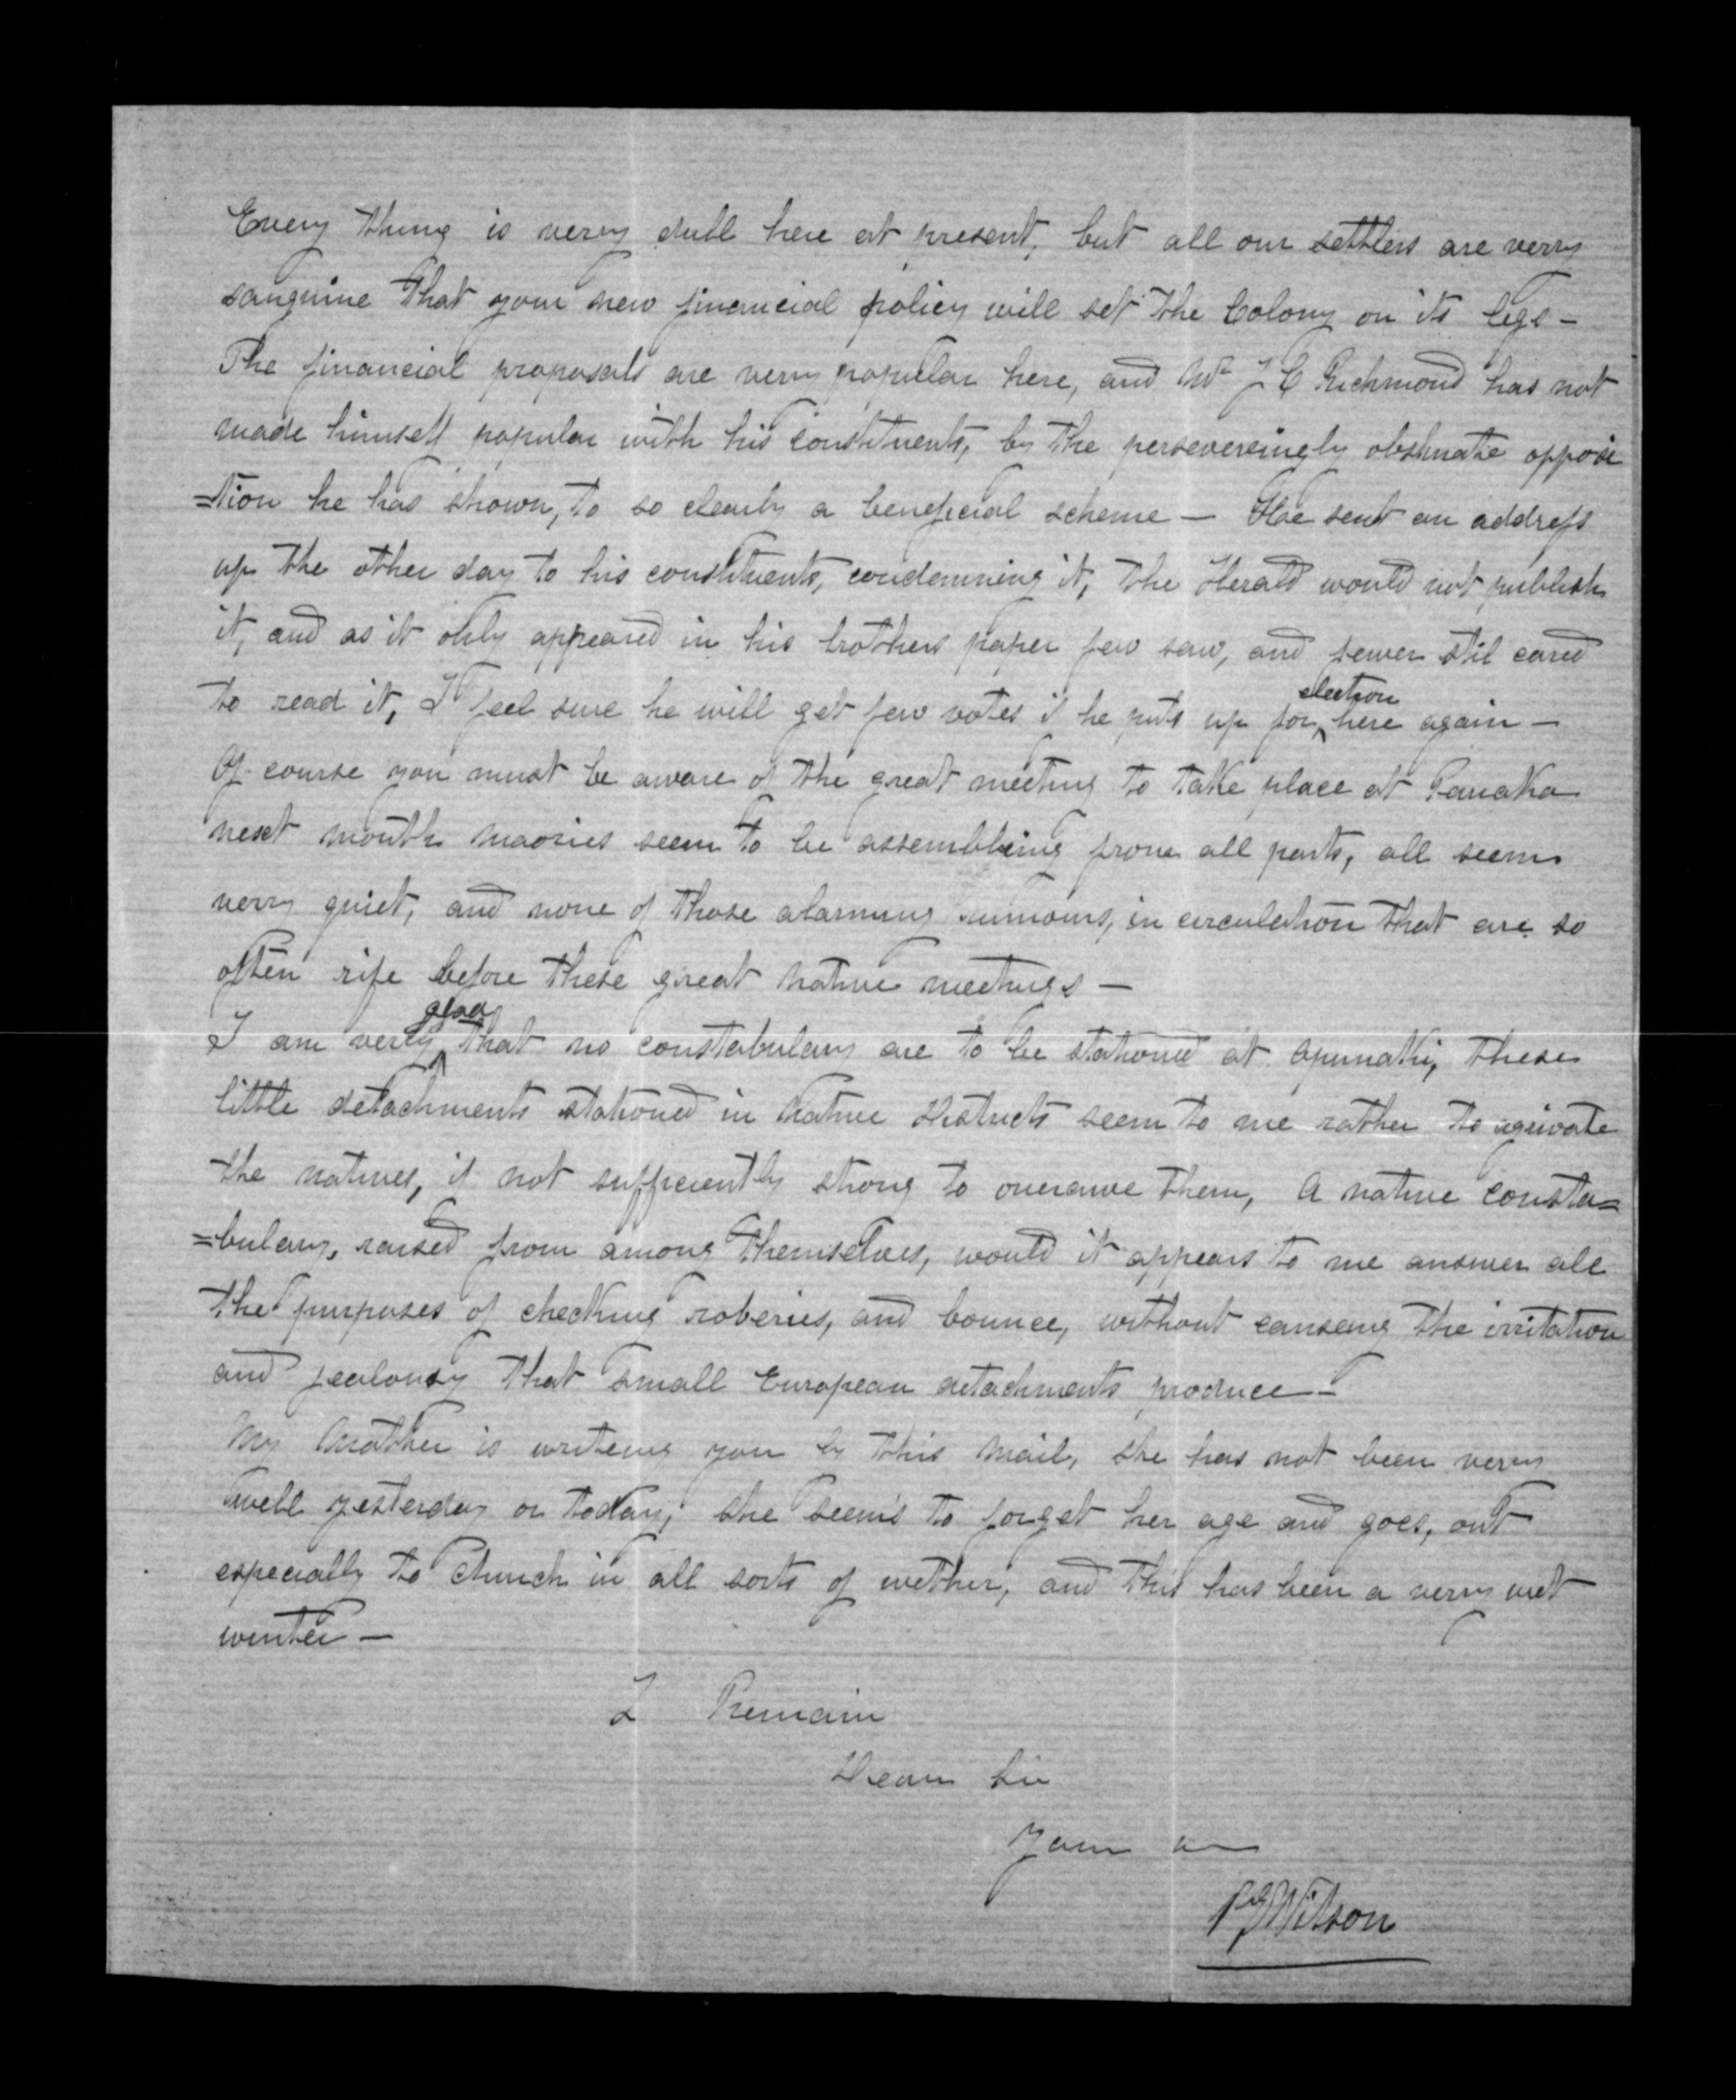 Every thing is verry dull here at present, but all our settlers are verry
sanguine that your new financial policy will set the Colony on its legs –
The financial proposals are very popular here, and Mr J C Richmond has not
made himself popular with his constituents, by the persevereingly obstinate opposi
=tion he has shown, to so clearly a beneficial scheme – He sent an address
up the other day to his constituents, condemning it, the Herald would not publish
it, and as it only appeared in his brothers paper few saw, and fewer stil cared
to read it, I feel sure he will get few votes if he puts up for election here again –
Of course you must be aware of the great meeting to take place at Parihaka
next month Maories seem to be assembleing from all parts, all seems
verry quiet, and none of those alarming rumours, in circulation that are so
often rife before these great Native meetings –
I am very glad that no constabulary are to be stationed at Opunaki, these
little detachments stationed in Native districts seem to me rather to
the natives, if not sufficiently strong to overawe them, A native consta=
=bulary, raised from among themselves, would it appears to me answer all
the purposes of checking roberies, and bounce, without causeing the irritation
and jealousy that small European detachments produce –
My Mother is writeing you by this Mail, she has not been verry
well yesterday or today, she seems to forget her age and goes, out
especially to Church in all sorts of wether, and this has been a verry wet
winter –
I Remain
Dear Sir
Yours
Wilson